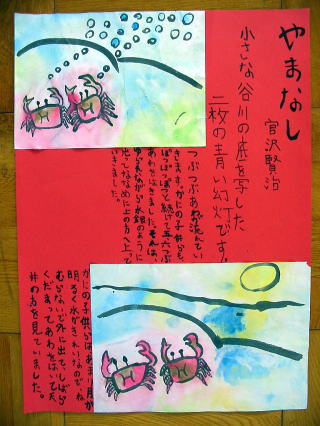 やまなし
宮沢賢治
小さな谷川の底を写した
二枚の青い幻灯です。
つぶつぶあわが流れてい
きます。かにの子供らも、
ぽっぽっぽっと続けて五六つぶ
あわをはきました。それは、
ゆれながら水銀のように
光ってななめに上の方へ上って
いきました。
かにの子供らはあまり月が
明るく水がきれいなので、ね
むらないで外に出て、しばら
くだまってあわをはいて天
井の方を見ていました。